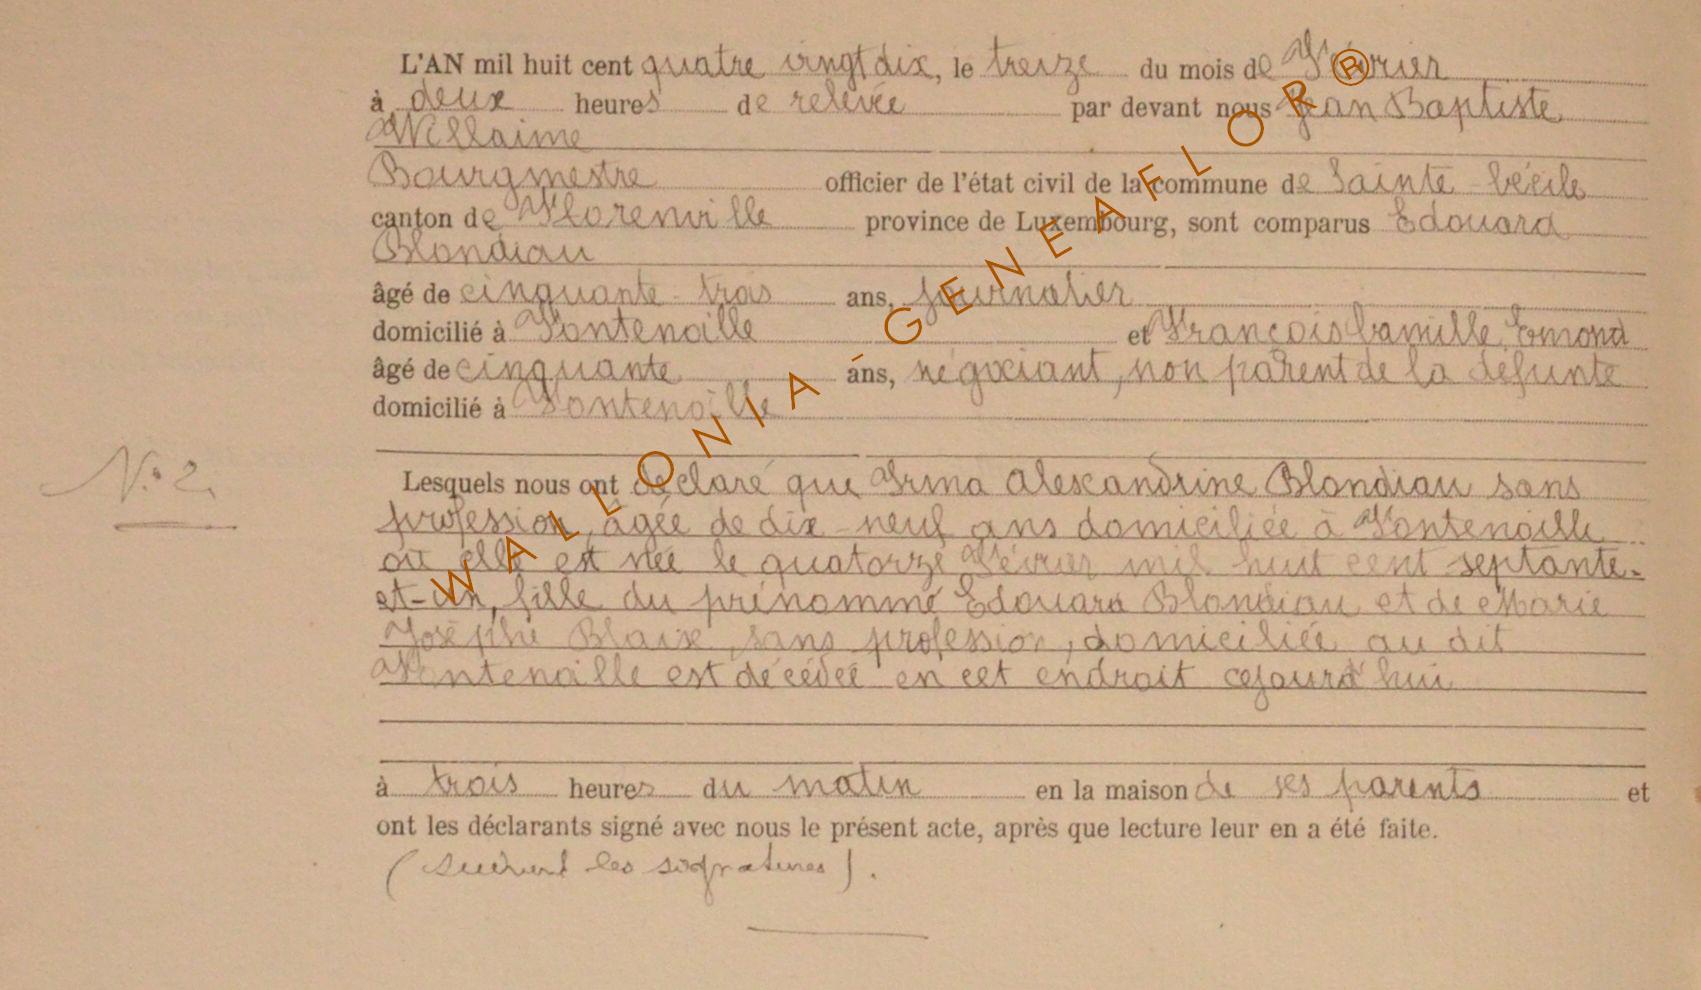 L'AN mil huit cent quatre vingt dix, le treize du mois de Février
à deux heures de relevée par devant nous Jean Baptiste
Willaime
Bourgmestre officier de l'état civil de la commune de Sainte-Cécile
canton de Florenville province de Luxembourg, sont comparus Edouard
Blondiau
âgé de cinquante-trois ans, journalier
domicilié à Fontenoille et François Camille Emond
âgé de cinquante ans, négociant, non parent de la défunte
domicilié à Fontenoille
N° 2.
Lesquels nous ont déclaré que Irma Alexandrine Blondiau sans
profession, âgée de dix-neuf ans domiciliée à Fontenoille
où elle est née le quatorze Février mil huit cent septante-
et-un, fille du prénommé Edouard Blondiau et de Marie
Josèphe Blaise, sans profession, domiciliée au dit
Fontenoille est décédée en cet endroit cejourd'hui
à trois heures du matin en la maison de ses parents et
ont les déclarants signé avec nous le présent acte, après que lecture leur en a été faite.
(suivent les signatures).
WALLONIA - GENEAFLOR ®